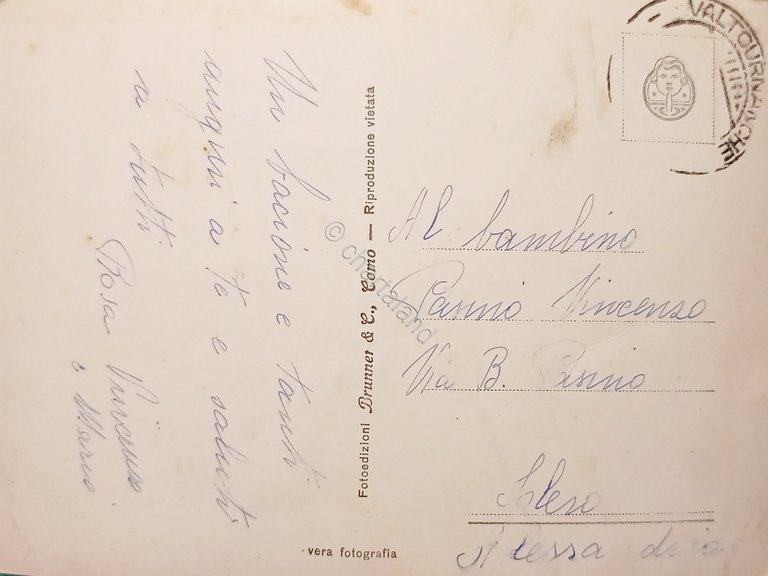 Un bacione e tanti
auguri a te e saluti
a tutti
Rosa Vincenzo
e Mario
Fotoedizioni Brunner & C., Como — Riproduzione vietata
vera fotografia
VALTOURNANCHE
Al bambino
Pasino Vincenzo
Via B. Pasino
Alessandria
© chartaland